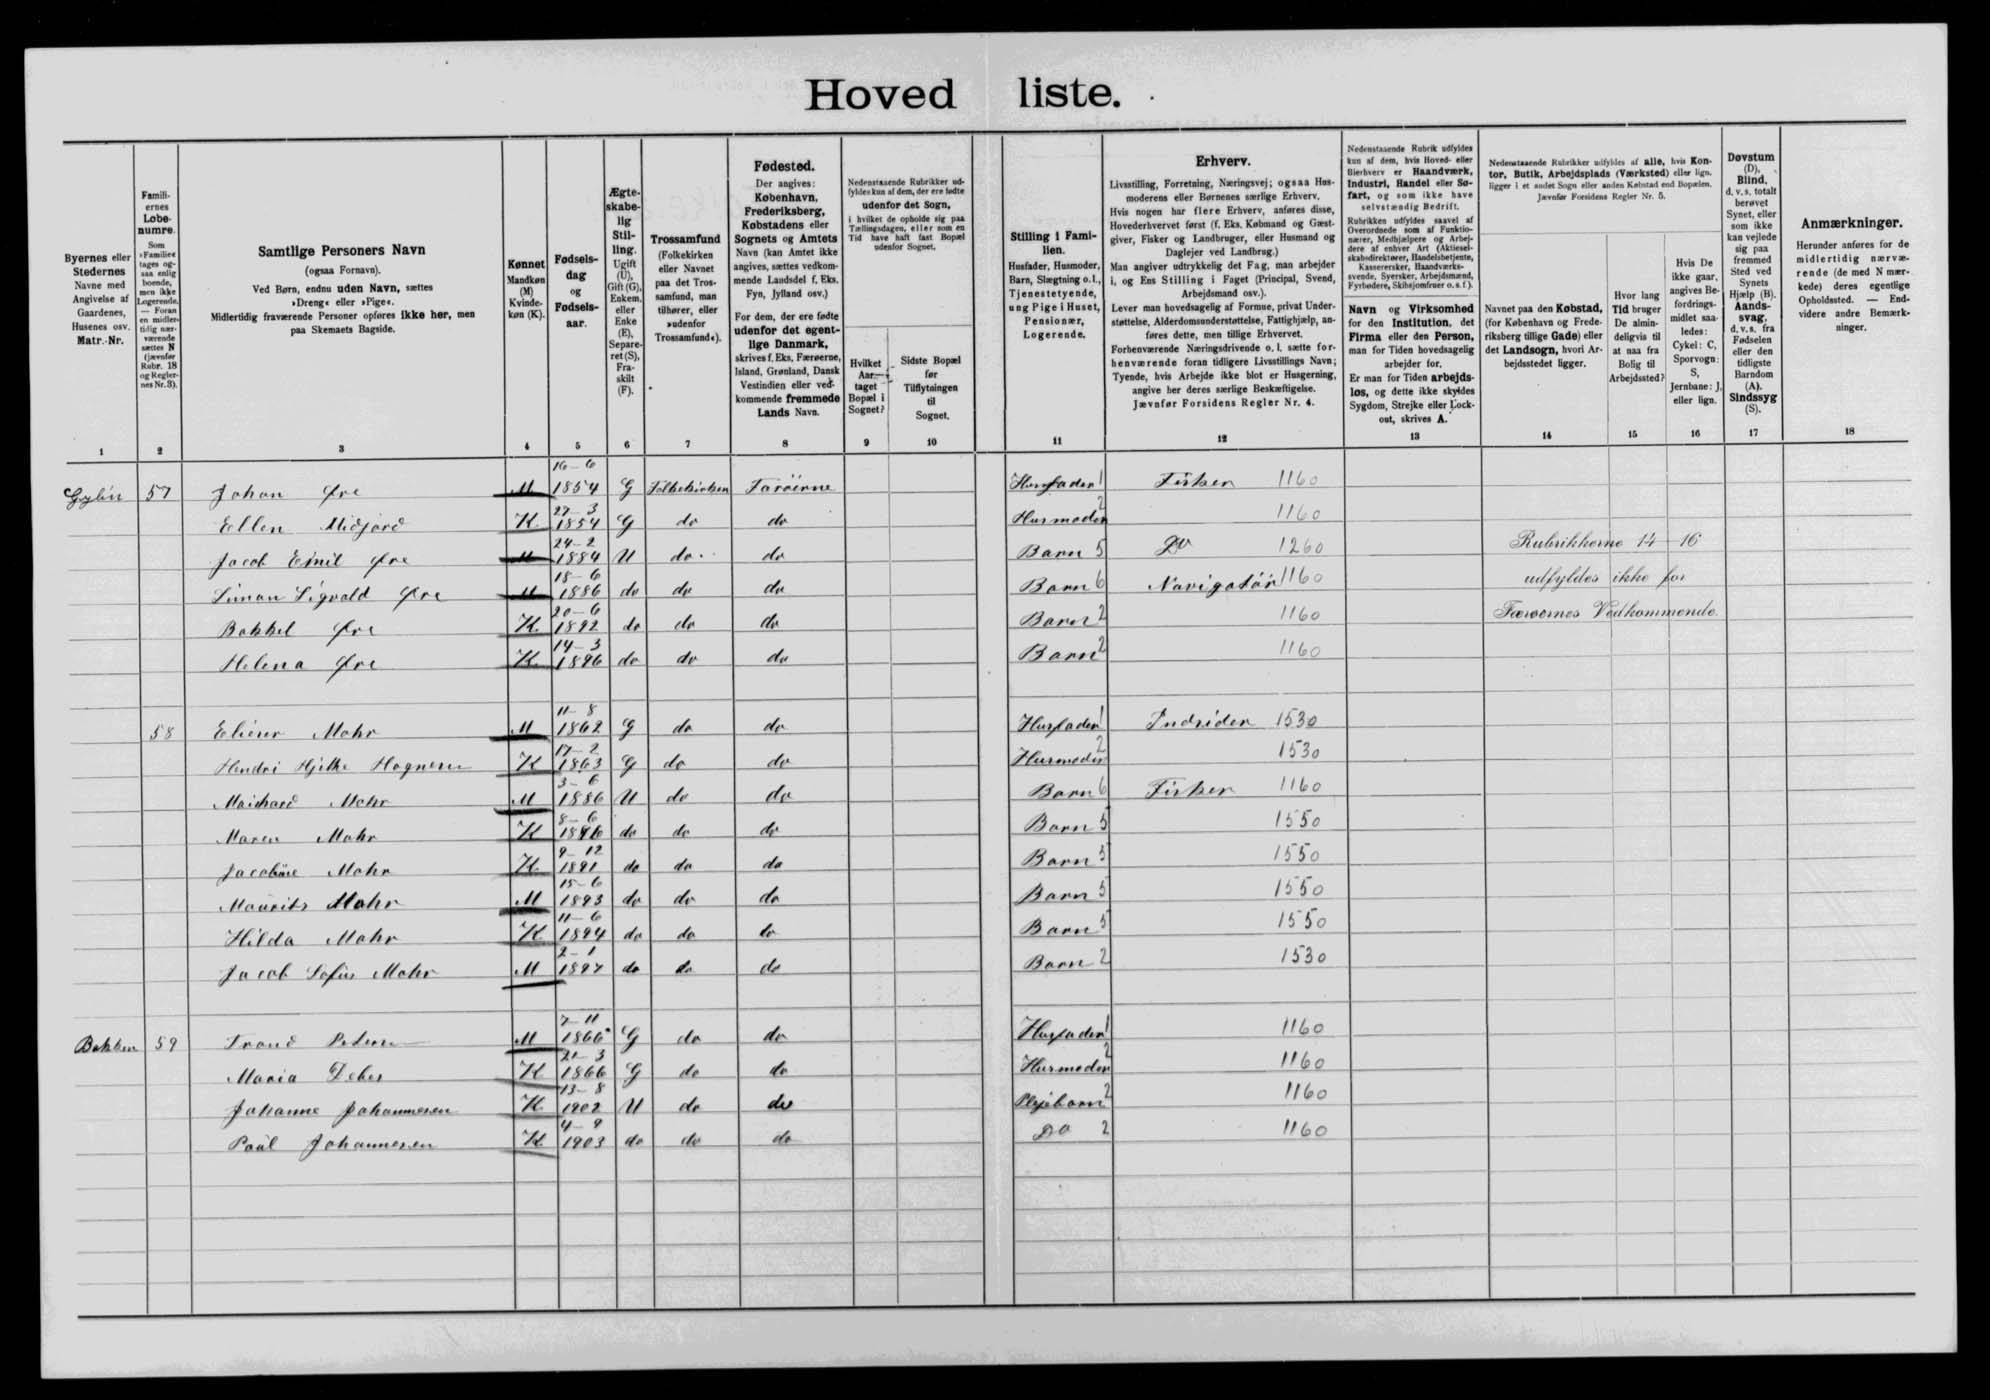 Hovedliste.
Byernes eller Stedernes Navne med Angivelse af Gaardenes, Husenes osv. Matr.-Nr.
Familiernes Løbenumre.
Som »Familie« tages ogsaa enlig boende, men ikke Logerende. — Foran en midlertidig nærværende sættes N (jævnfør Rubr. 18 og Reglernes Nr. 3).
Samtlige Personers Navn
(ogsaa Fornavn).
Ved Børn, endnu uden Navn, sættes
»Dreng« eller »Pige«.
Midlertidig fraværende Personer opføres ikke her, men
paa Skemaets Bagside.
Kønnet
Mandkøn (M)
Kvindekøn (K).
Fødselsdag og Fødselsaar.
Ægteskabelig Stilling.
Ugift (U), Gift (G), Enkem. eller Enke (E), Separeret (S), Fraskilt (F).
Trossamfund
(Folkekirken eller Navnet paa det Trossamfund, man tilhører, eller »udenfor Trossamfund«).
Fødested.
Der angives: København, Frederiksberg, Købstadens eller Sognets og Amtets Navn (kan Amtet ikke angives, sættes vedkommende Landsdel f. Eks. Fyn, Jylland osv.)
For dem, der ere fødte udenfor det egentlige Danmark, skrives f. Eks. Færøerne, Island, Grønland, Dansk Vestindien eller vedkommende fremmede Lands Navn.
Nedenstaaende Rubrikker udfyldes kun af dem, der ere fødte udenfor det Sogn, i hvilket de opholde sig paa Tællingsdagen, eller som en Tid have haft fast Bopæl udenfor Sognet.
Hvilket Aar taget Bopæl i Sognet?
Sidste Bopæl før Tilflytningen til Sognet.
Stilling i Familien.
Husfader, Husmoder, Barn, Slægtning o. l., Tjenestetyende, ung Pige i Huset, Pensionær, Logerende.
Erhverv.
Livsstilling, Forretning, Næringsvej; ogsaa Husmoderens eller Børnenes særlige Erhverv.
Hvis nogen har flere Erhverv, anføres disse, Hovederhvervet først (f. Eks. Købmand og Gæstgiver, Fisker og Landbruger, eller Husmand og Daglejer ved Landbrug.)
Man angiver udtrykkelig det Fag, man arbejder i, og Ens Stilling i Faget (Principal, Svend, Arbejdsmand osv.).
Lever man hovedsagelig af Formue, privat Understøttelse, Alderdomsunderstøttelse, Fattighjælp, anføres dette, men tillige Erhvervet.
Forhenværende Næringsdrivende o. l. sætte forhenværende foran tidligere Livsstillings Navn; Tyende, hvis Arbejde ikke blot er Husgerning, angive her deres særlige Beskæftigelse.
Jævnfør Forsidens Regler Nr. 4.
Nedenstaaende Rubrik udfyldes kun af dem, hvis Hoved- eller Bierhverv er Haandværk, Industri, Handel eller Søfart, og som ikke have selvstændig Bedrift.
Rubrikken udfyldes saavel af Overordnede som af Funktionærer, Medhjælpere og Arbejdere af enhver Art (Aktieselskabsdirektører, Handelsbetjente, Kassererske, Haandværkssvende, Syersker, Arbejdsmænd, Fyrbødere, Skibsjomfruer o. s. f.).
Navn og Virksomhed for den Institution, det Firma eller den Person, man for Tiden hovedsagelig arbejder for.
Er man for Tiden arbejdsløs, og dette ikke skyldes Sygdom, Strejke eller Lockout, skrives A.
Nedenstaaende Rubrikker udfyldes af alle, hvis Kontor, Butik, Arbejdsplads (Værksted) eller lign. ligger i et andet Sogn eller anden Købstad end Bopælen.
Jævnfør Forsidens Regler Nr. 5.
Navnet paa den Købstad, (for København og Frederiksberg tillige Gade) eller det Landsogn, hvori Arbejdsstedet ligger.
Hvor lang Tid bruger De almindeligvis til at naa fra Bolig til Arbejdssted?
Hvis De ikke gaar, angives Befordringsmidlet saaledes: Cykel: C, Sporvogn: S, Jernbane: J, eller lign.
Døvstum (D), Blind, d. v. s. totalt berøvet Synet, eller som ikke kan vejlede sig paa fremmed Sted ved Synets Hjælp (B). Aandssvag, d. v. s. fra Fødselen eller den tidligste Barndom (A). Sindssyg (S).
Anmærkninger.
Herunder anføres for de midlertidig nærværende (de med N mærkede) deres egentlige Opholdssted. — Endvidere andre Bemærkninger.
1 2 3 4 5 6 7 8 9 10 11 12 13 14 15 16 17 18
57 Johan Øre M 16-6 1854 G Folkekirken Farøerne Husfader 1 Fisker 1160
Ellen Midjord K 27-3 1854 G do do Husmoder 2 1160
Jacob Emil Øre M 24-2 1884 U do do Barn 5 Do 1260 Rubrikkerne 14-16
Simon Sigvald Øre M 18-6 1886 do do do Barn 6 Navigatør 1160 udfyldes ikke for
Øre K 20-6 1892 do do do Barn 2 1160 Færøernes Vedkommende.
Helena Øre K 14-3 1896 do do do Barn 2 1160
58 Mohr M 11-8 1862 G do do Husfader 1 1530
K 17-2 1863 G do do Husmoder 2 1530
Mohr M 3-6 1886 U do do Barn 6 Fisker 1160
Maren Mohr K 8-6 do do do Barn 5 1550
Jacobine Mohr K 9-12 1891 do do do Barn 5 1550
Maurits Mohr M 15-6 1893 do do do Barn 5 1550
Hilda Mohr K 11-6 1894 do do do Barn 5 1550
Jacob Sofus Mohr M 2-1 1897 do do do Barn 2 1530
Bakken 59 Trond M 7-11 1866 G do do Husfader 1 1160
Maria Debes K 21-3 1866 G do do Husmoder 2 1160
Johanne Johannesen K 13-8 1902 U do do Plejebarn 2 1160
Paul Johannesen K 4-9 1903 do do do Do 2 1160